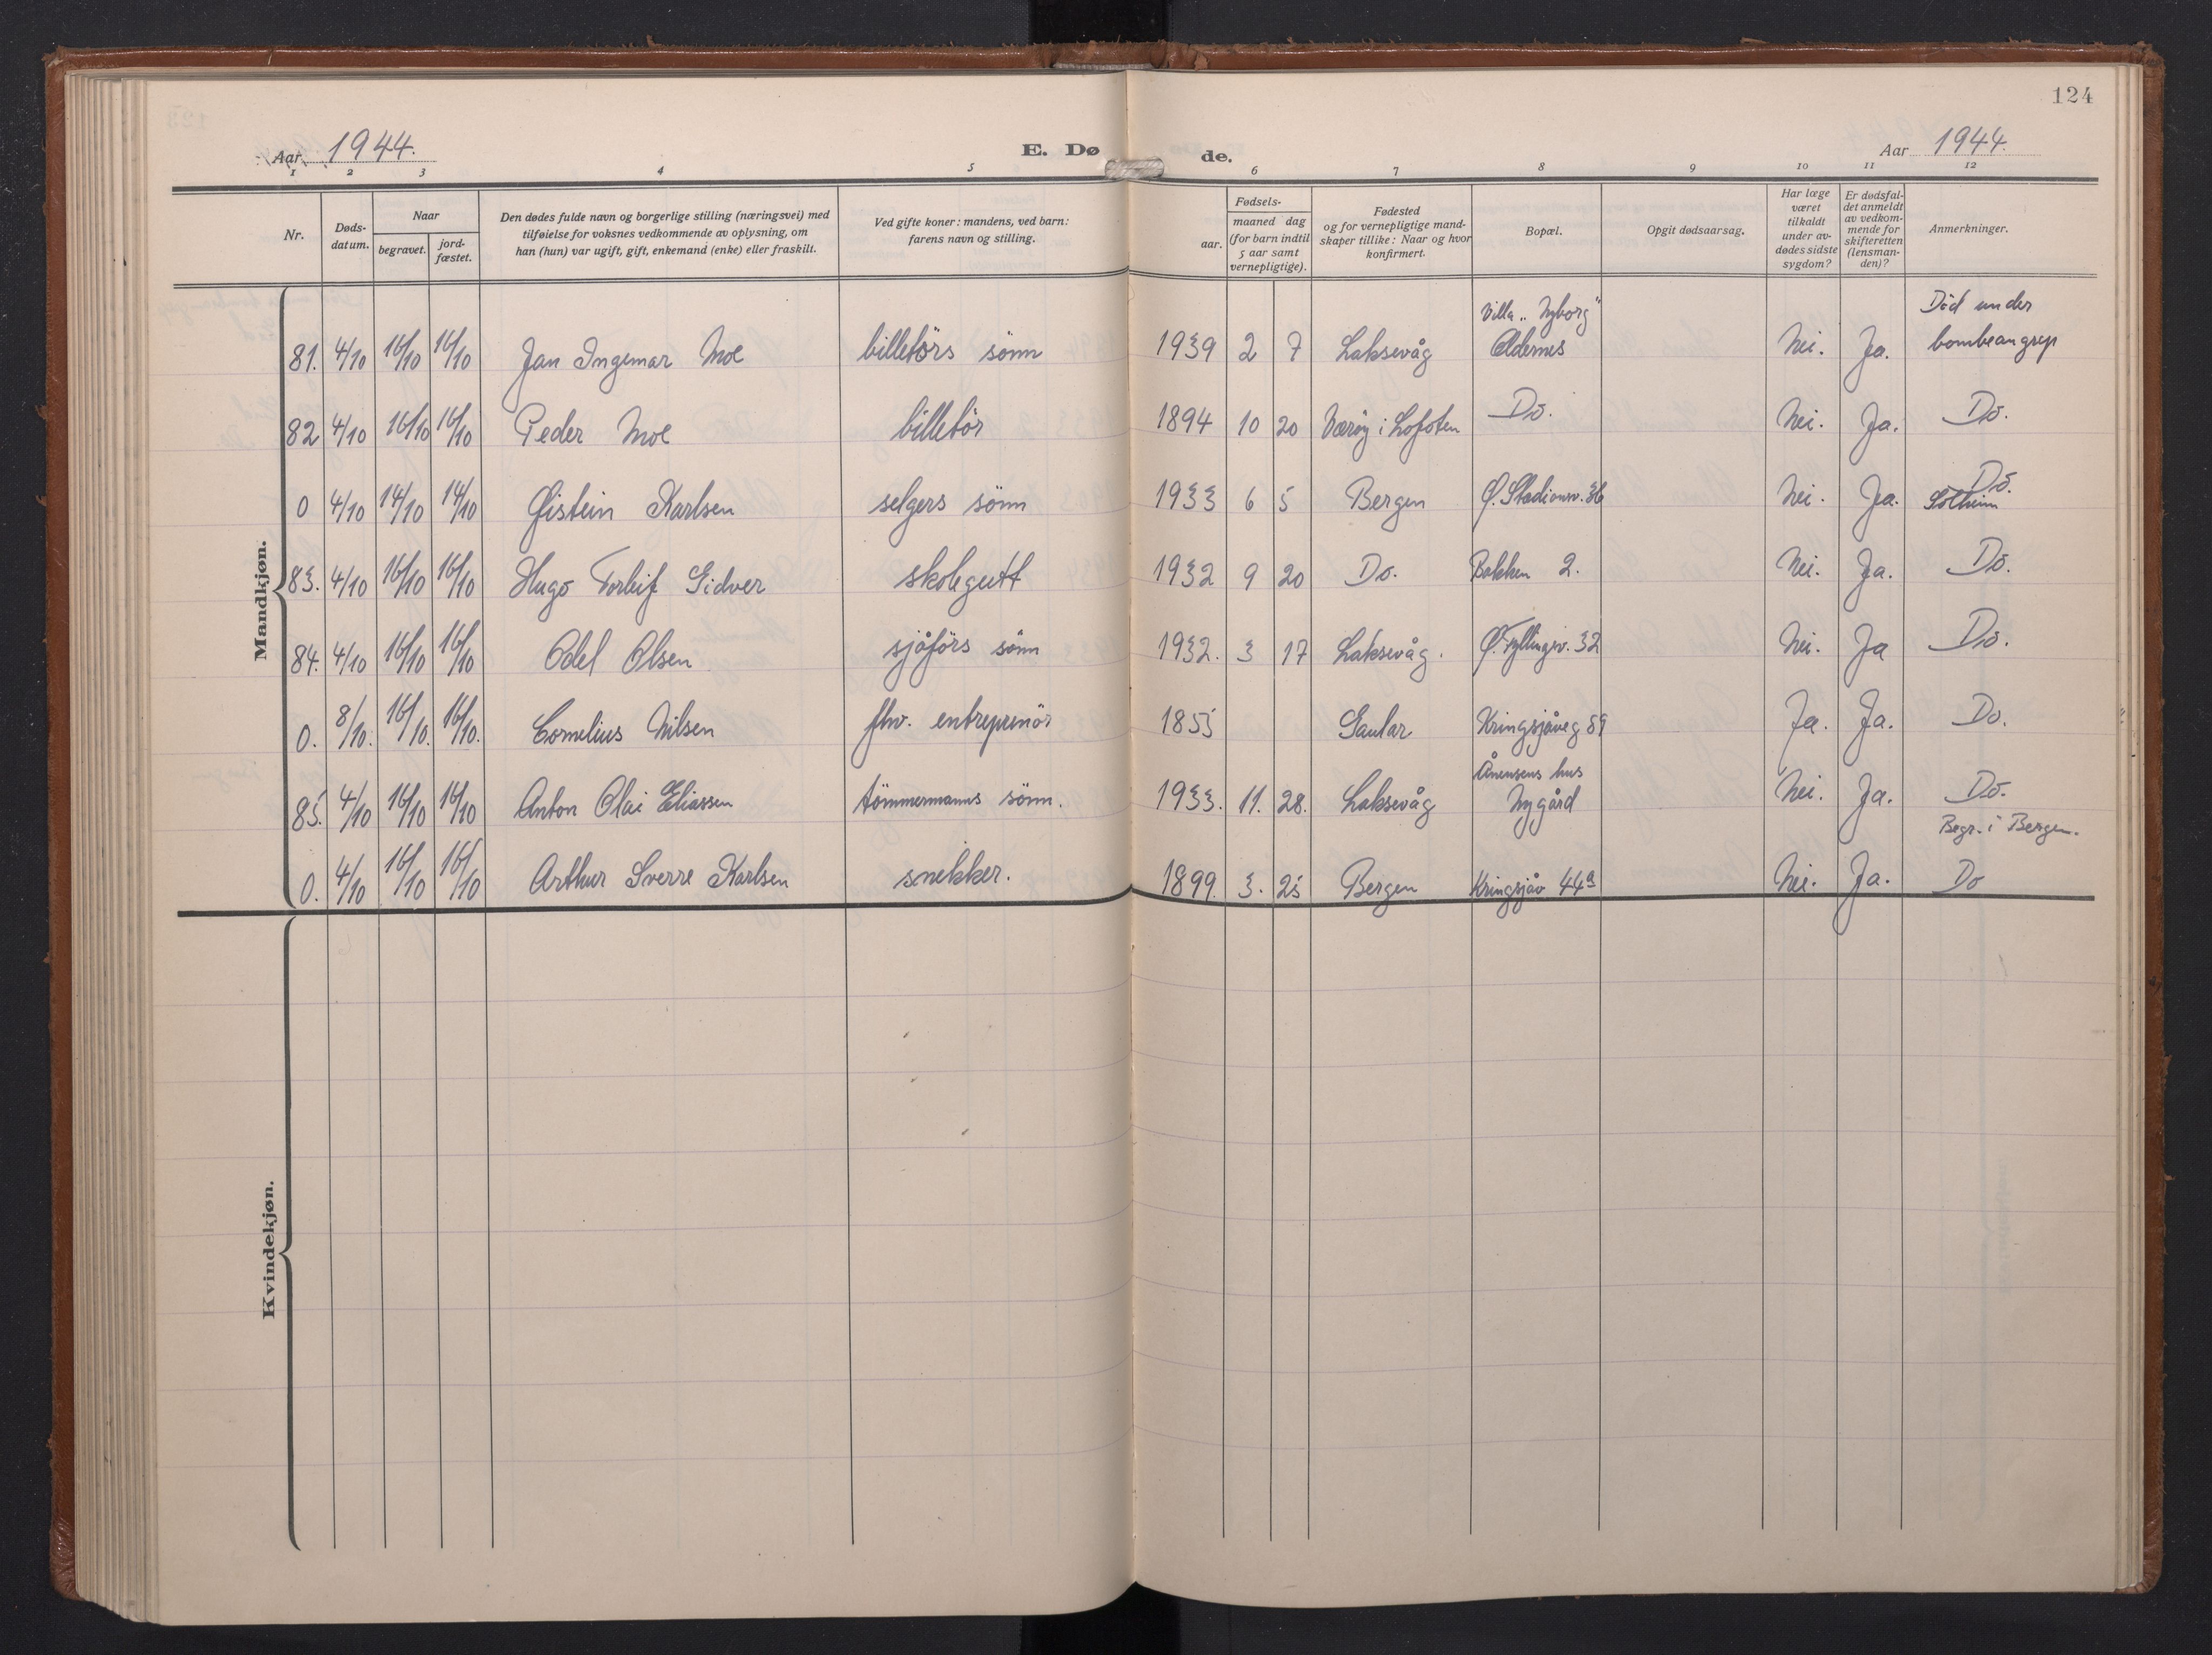 124
Aar 1944. E. Dø de. Aar 1944.
1 2 3 4 5 6 7 8 9 10 11 12
Nr.
Døds-
datum.
Naar
begravet.
jord-
fæstet.
Den dødes fulde navn og borgerlige stilling (næringsvei) med
tilføielse for voksnes vedkommende av oplysning, om
han (hun) var ugift, gift, enkemand (enke) eller fraskilt.
Ved gifte koner: mandens, ved barn:
farens navn og stilling.
Fødsels-
aar.
maaned dag
(for barn indtil
5 aar samt
vernepligtige).
Fødested
og for vernepligtige mand-
skaper tillike: Naar og hvor
konfirmert.
Bopæl.
Opgit dødsaarsag.
Har læge
været
tilkaldt
under av-
dødes sidste
sygdom?
Er dødsfal-
det anmeldt
av vedkom-
mende for
skifteretten
(lensman-
den)?
Anmerkninger.
Mandkjøn.
Villa "Nyborg" Död under
81. 4/10 16/10 16/10 Jan Ingemar Moe billetörs sönn 1939 2 7 Laksevåg Oldernes Nei. Ja. bombeangrep
82 4/10 16/10 16/10 Peder Moe billetör 1894 10 20 Værøy i Lofoten Do. Nei. Ja. Do.
0 4/10 14/10 14/10 Øistein Karlsen selgers sönn 1933 6 5 Bergen Ø. Stadionsv. 36 Nei. Ja. Do.
Solheim
83. 4/10 16/10 16/10 Hugo Torleif Gidver skolegutt 1932 9 20 Do. Bakken 2. Nei. Ja. Do.
84. 4/10 16/10 16/10 Odel Olsen sjåförs sönn 1932. 3 17 Laksevåg. Ø. Fyllingsv. 32 Nei. Ja Do.
0. 8/10. 16/10. 16/10. Cornelius Nilsen fhv. entreprenör 1855 Gaular Kringsjåveg 89 Ja. Ja. Do.
Ånensens hus
85. 4/10 16/10 16/10 Anton Olai Eliassen tömmermanns sönn. 1933. 11. 28. Laksevåg Nygård Nei. Ja. Do.
Begr. i Bergen.
0. 4/10 16/10 16/10 Arthur Sverre Karlsen snekker. 1899. 3. 25 Bergen Kringsjåv 44a Nei. Ja. Do
Kvindekjøn.